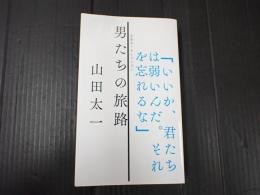 「いいか、君たち
は弱いんだ。それ
を忘れるな」
男たちの旅路
山田太一